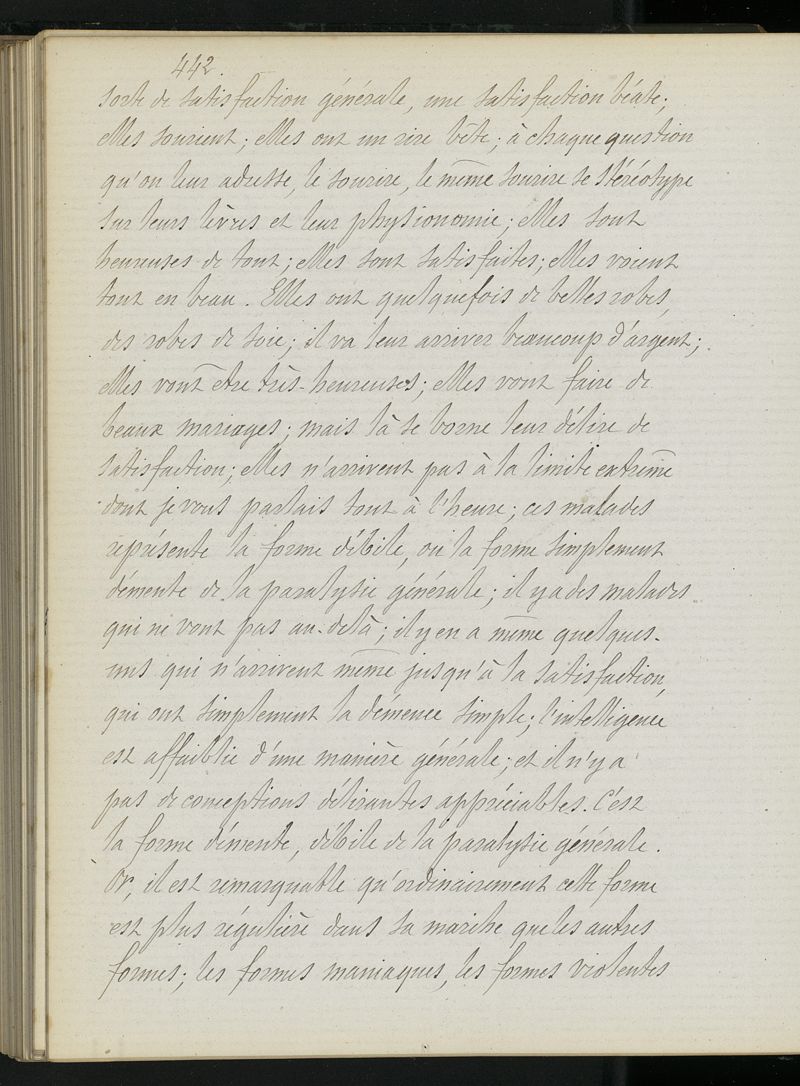 442.
sorte de satisfaction générale, une satisfaction béate;
elles sourient; elles ont un rire bête; à chaque question
qu'on leur adresse, le sourire, le même sourire se stéréotype
sur leurs lèvres et leur physionomie; elles sont
heureuses de tout; elles sont satisfaites; elles voient
tout en beau. Elles ont quelquefois de belles robes,
des robes de soie; il va leur arriver beaucoup d'argent;
elles vont être très-heureuses; elles vont faire de
beaux mariages; mais là se borne leur délire de
satisfaction; elles n'arrivent pas à la limite extrême
dont je vous parlais tout à l'heure; ces malades
représente la forme débile, ou la forme simplement
démente de la paralysie générale; il y a des malades
qui ne vont pas au-delà; il y en a même quelques-
uns qui n'arrivent même jusqu'à la satisfaction,
qui ont simplement la démence simple; l'intelligence
est affaiblie d'une manière générale; et il n'y a
pas de conceptions délirantes appréciables. C'est
la forme démente, débile de la paralysie générale.
Or, il est remarquable qu'ordinairement cette forme
est plus régulière dans sa marche que les autres
formes; les formes maniaques, les formes violentes